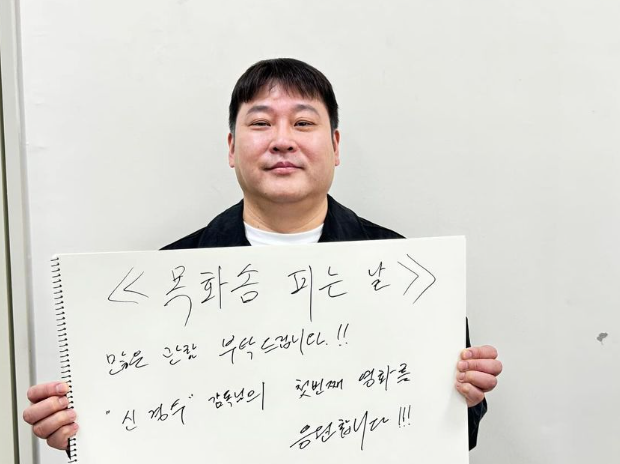 《 목화솜 피는 날 》
많은 관람 부탁드립니다.!!
"신경수" 감독님의 첫번째 영화를
응원합니다!!!